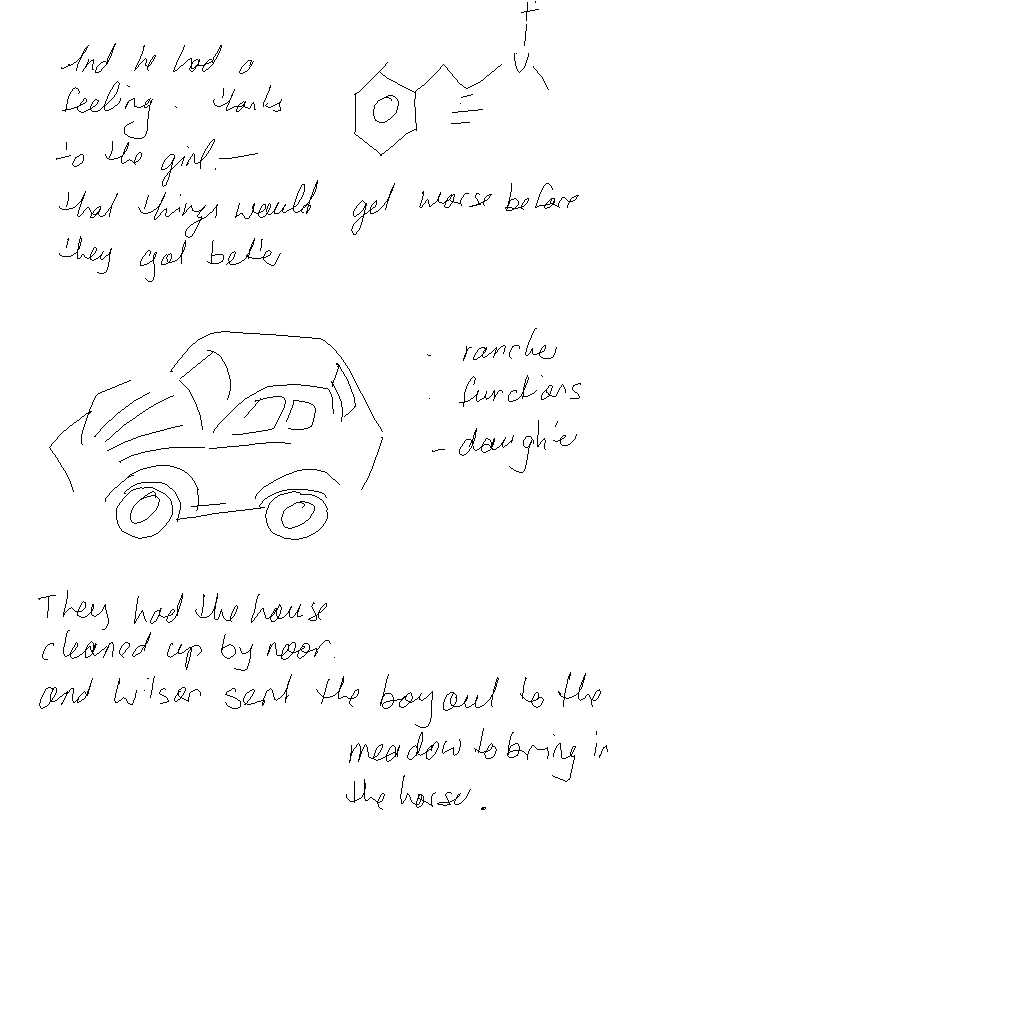 And he had a
feeling. thanks
to the girl. —
that things would get worse before
they got better
· rancher
· functions
- daughter
They had the house
cleaned up by noon.
and Wilson sent the boy out to the
meadow to bring in
the horse.